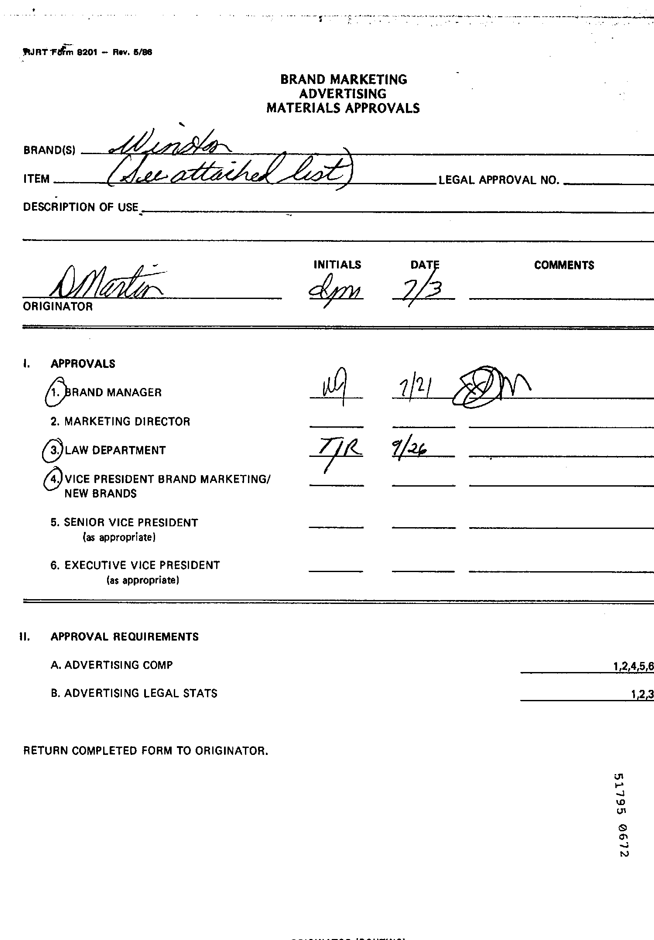 RJRT Form 8201 – Rev. 5/86
BRAND MARKETING
ADVERTISING
MATERIALS APPROVALS
BRAND(S) Winston
ITEM (See attached list) LEGAL APPROVAL NO.
DESCRIPTION OF USE
INITIALS DATE COMMENTS
DMartin dpm 7/3
ORIGINATOR
I. APPROVALS
1. BRAND MANAGER 7/21
2. MARKETING DIRECTOR
3. LAW DEPARTMENT TJR 9/26
4. VICE PRESIDENT BRAND MARKETING/
NEW BRANDS
5. SENIOR VICE PRESIDENT
(as appropriate)
6. EXECUTIVE VICE PRESIDENT
(as appropriate)
II. APPROVAL REQUIREMENTS
A. ADVERTISING COMP 1,2,4,5,6
B. ADVERTISING LEGAL STATS 1,2,3
RETURN COMPLETED FORM TO ORIGINATOR.
51795 0672